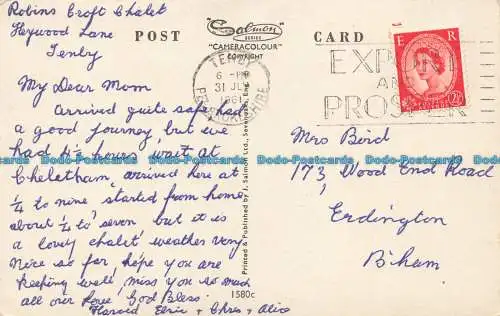 Robins Croft Chalet
Heywood Lane
Tenby
POST
Salmon
SERIES
"CAMERACOLOUR"
COPYRIGHT
CARD
TENBY
6 - PM
31 JLY
1961
PEMBROKESHIRE
EXPORT
AND
PROSPER
E R
2½
My Dear Mom
Arrived quite safe had
a good journey but we
had 4½ hours wait at
Cheletham arrived here at
¼ to nine started from home
about ¼ to seven but it is
a lovely chalet weather very
nice so far, hope you are
keeping well, miss you so much
all our love, God Bless.
Harold Elsie + Chris + Alice
Mrs Bird
173 Wood End Road
Erdington
B'ham
Printed & Published by J. Salmon Ltd., Sevenoaks, Eng
1580c
Do-Postcards Do-Postcards Do-Postcards Do-Postcards Do-Postcards